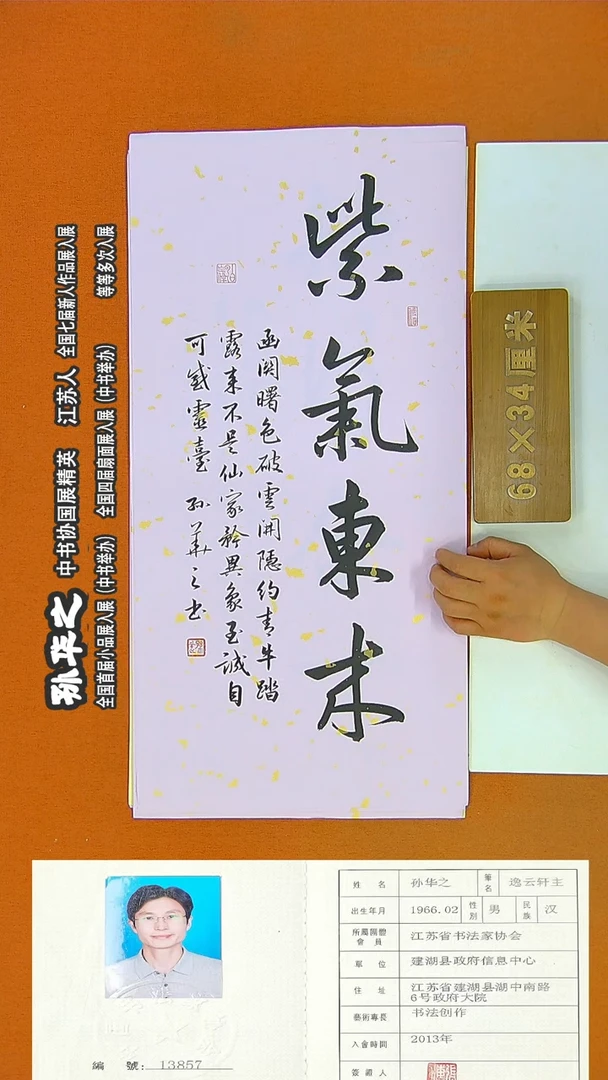 紫氣東来
函関曙色破雲開隐約青牛踏
露来不是仙家矜異象至誠自
可感靈臺 孙華之书
68×34厘米
孙华之 中书协国展精英 江苏人 全国七届新人作品展入展
全国首届小品展入展(中书举办) 全国四届扇面展入展(中书举办) 等等多次入展
姓名 孙华之 筆名 逸云轩主
出生年月 1966.02 性别 男 民族 汉
所屬團體會員 江苏省书法家协会
單位 建湖县政府信息中心
住址 江苏省建湖县湖中南路
6号政府大院
藝術專長 书法创作
入會時間 2013年
簽證人
編號: 13857